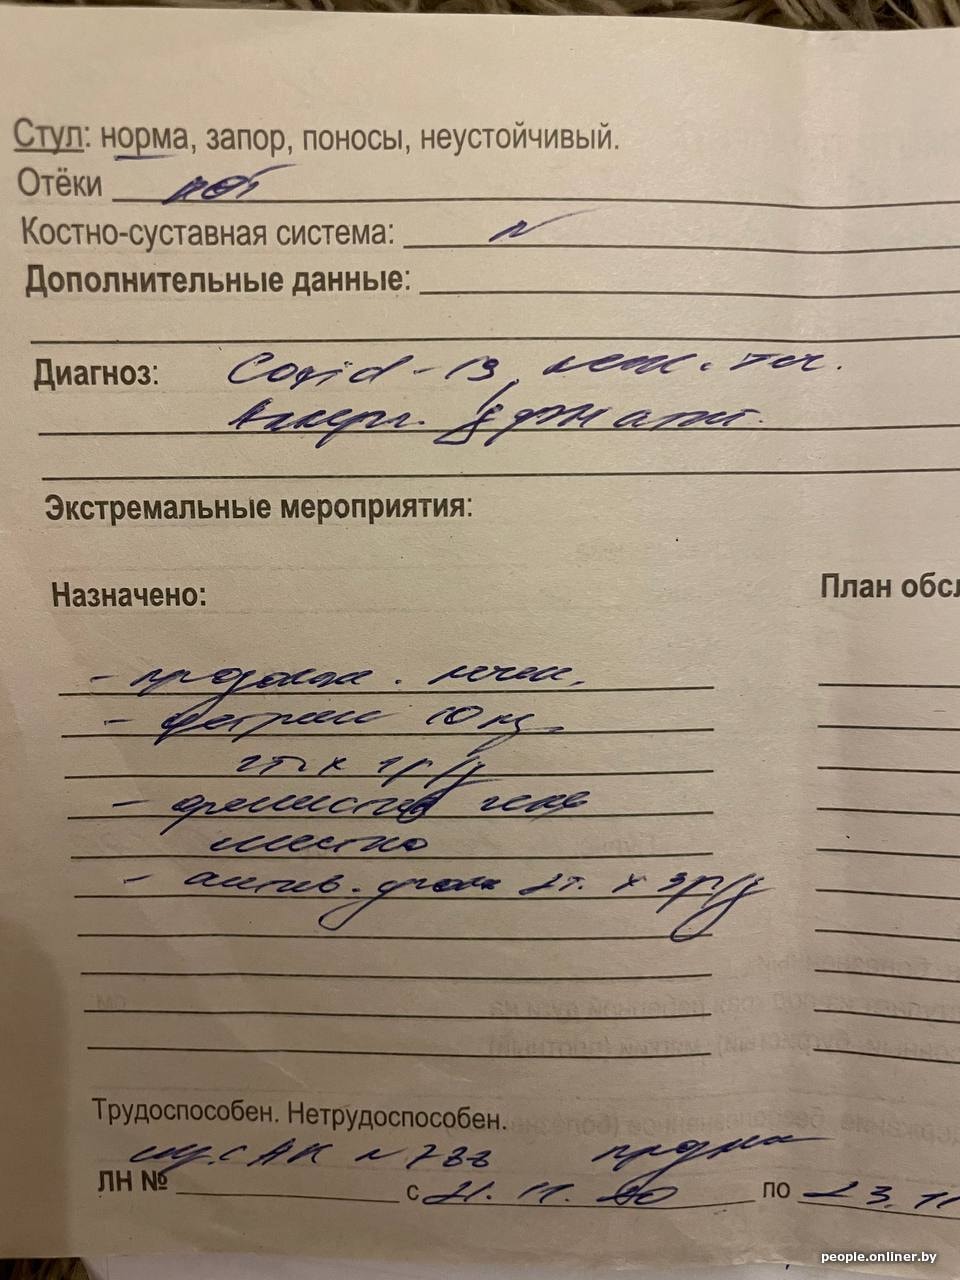 Стул: норма, запор, поносы, неустойчивый.
Отёки нет
Костно-суставная система: N
Дополнительные данные:
Диагноз: Covid-19, легк. теч.
Аллерг. дерматит.
Экстремальные мероприятия:
Назначено: План обсл
- продолж. лечен.
- 10 мг
1т х 1 р/д
- фенистил гель
местно
- актив. уголь 2т. х 3 р/д
Трудоспособен. Нетрудоспособен.
N 788 продлён
ЛН № с 21. 11. 20 по 23. 11
people.onliner.by